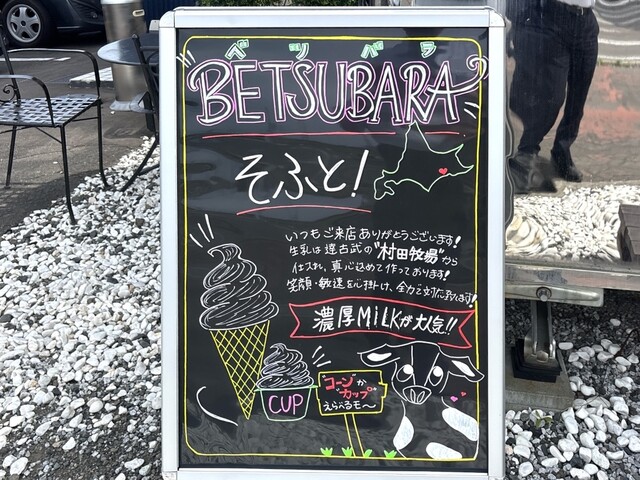 ベツバラ
BETSUBARA
そふと!
いつもご来店ありがとうございます!
生乳は達古武の"村田牧場"から
仕入れ、真心込めて作っております!
笑顔・敏速を心掛け、全力で対応致します!
濃厚MiLKが大人気!!
CUP
"コーン"か
"カップ"
えらべるモ〜